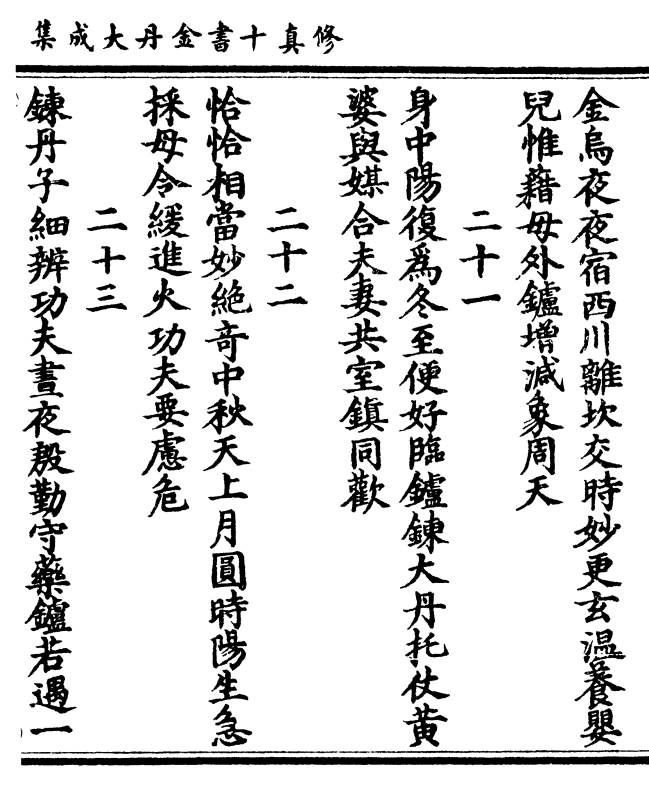 修真十書金丹大成集
金烏夜夜宿西川離坎交時妙更玄溫養嬰
兒惟藉母外鑪增減象周天
二十一
身中陽復爲冬至便好臨鑪鍊大丹托仗黃
婆與媒合夫妻共室鎮同歡
二十二
恰恰相當妙絕奇中秋天上月圓時陽生急
採毋令緩進火功夫要慮危
二十三
鍊丹子細辨功夫晝夜殷勤守藥鑪若遇一